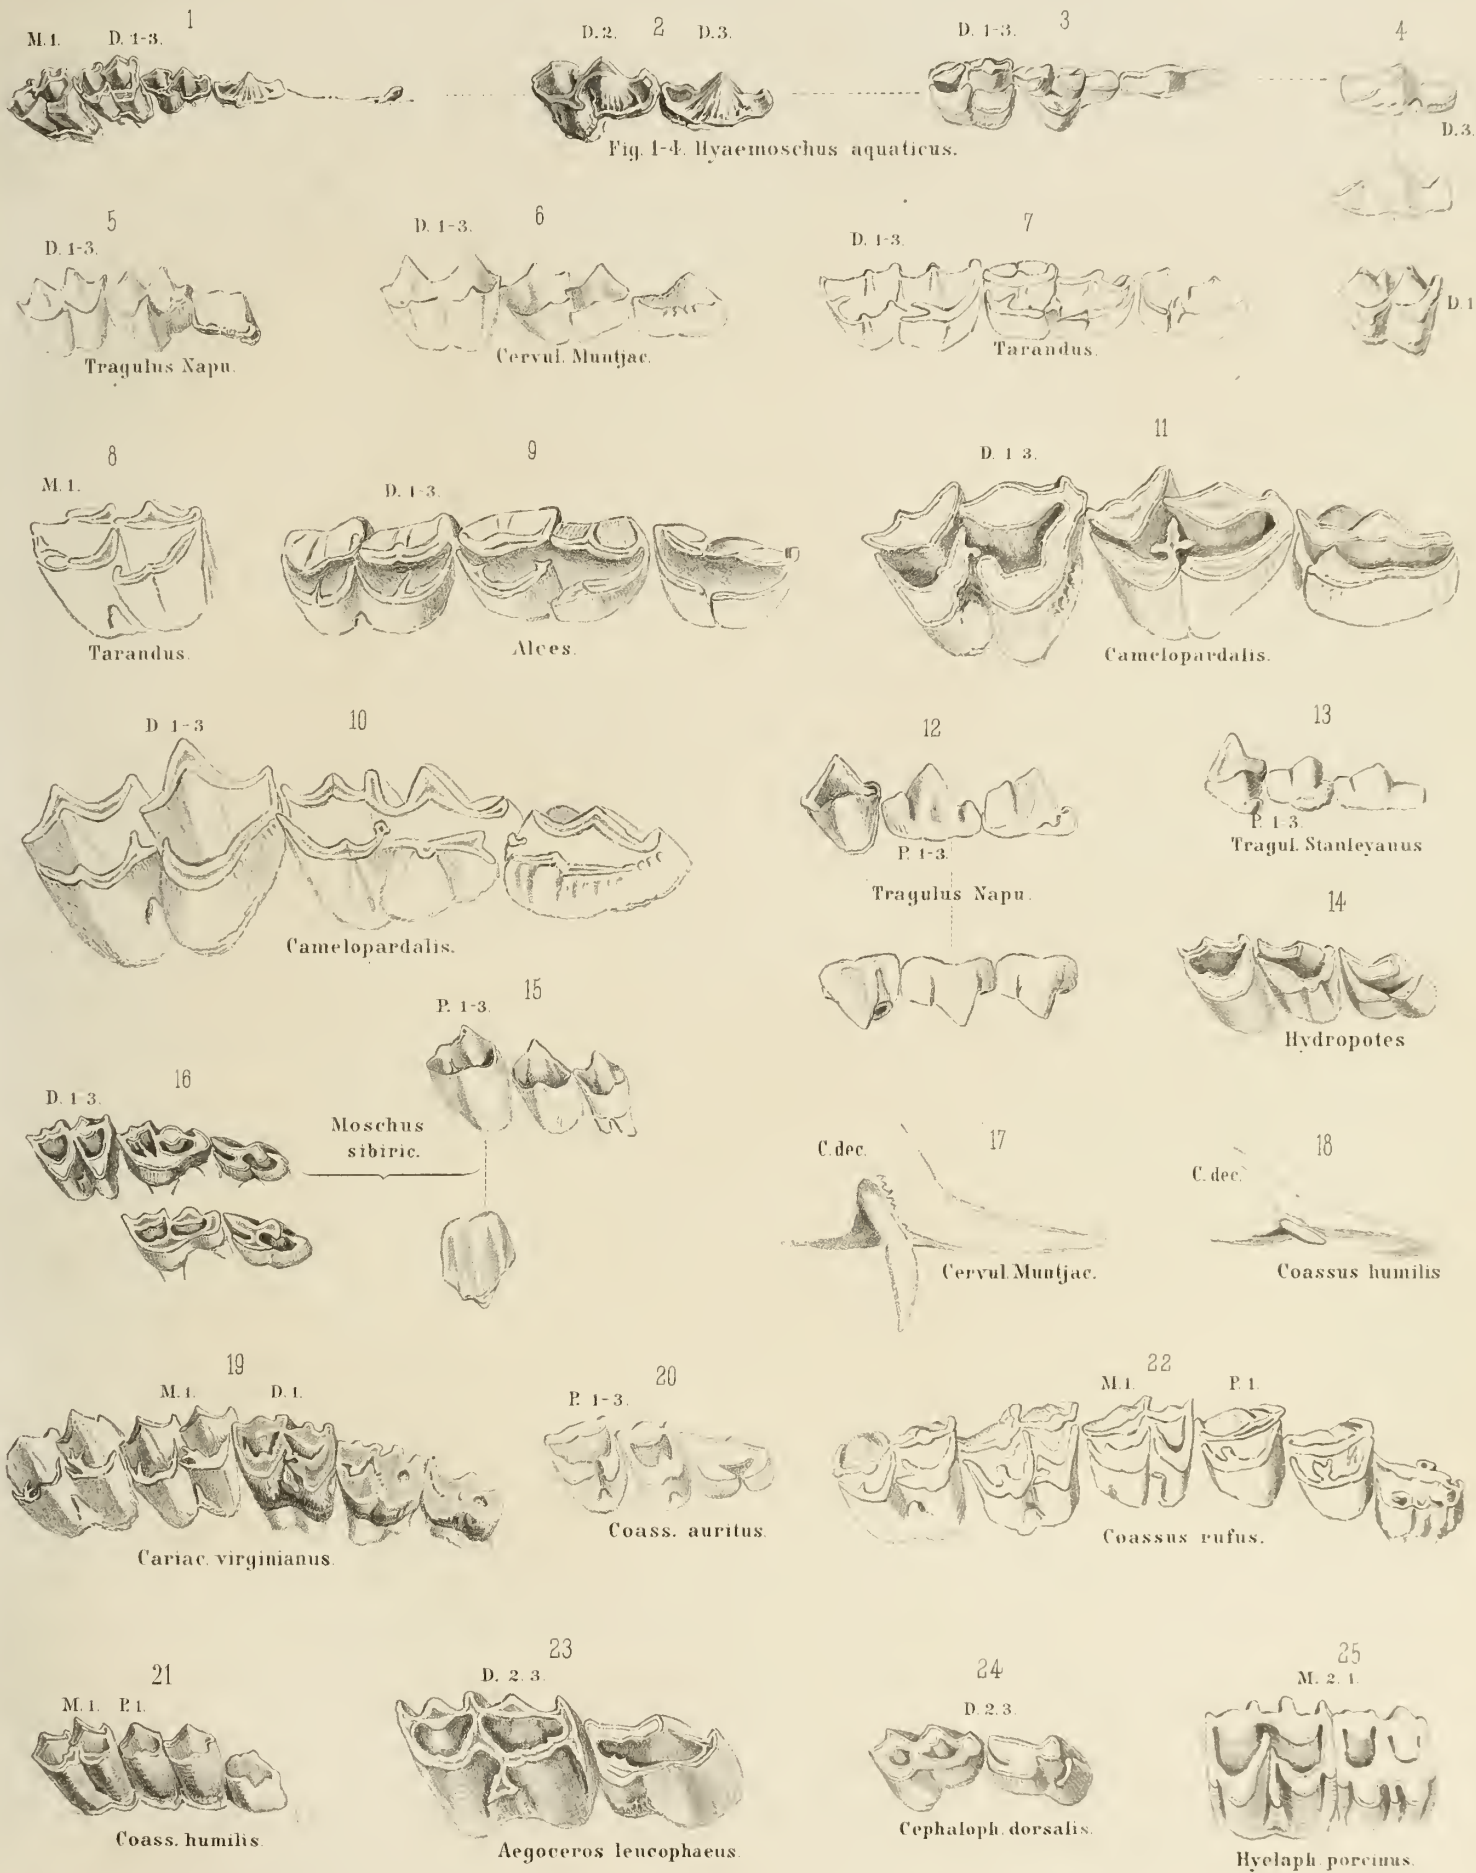 1
M. 1. D. 1-3.
2
D.2. D.3.
3
D. 1-3.
4
D.3.
D.1
Fig. 1-4. Hyaemoschus aquaticus.
5
D. 1-3.
Tragulus Napu.
6
D. 1-3.
Cervul. Muntjac.
7
D. 1-3.
Tarandus.
8
M. 1.
Tarandus.
9
D. 1-3.
Alces.
11
D. 1 3.
Camelopardalis.
10
D 1-3
Camelopardalis.
12
P. 1-3.
Tragulus Napu.
13
P. 1-3.
Tragul. Stanleyanus
14
Hydropotes
15
P. 1-3.
16
D. 1-3.
Moschus
sibiric.
17
C. dec.
Cervul. Muntjac.
18
C. dec.
Coassus humilis
19
M. 1. D. 1.
Cariac. virginianus.
20
P. 1-3.
Coass. auritus.
22
M. 1. P. 1.
Coassus rufus.
21
M. 1. P. 1.
Coass. humilis.
23
D. 2. 3.
Aegoceros leucophaeus.
24
D. 2. 3.
Cephaloph. dorsalis.
25
M. 2. 1.
Hyelaph. porcinus.